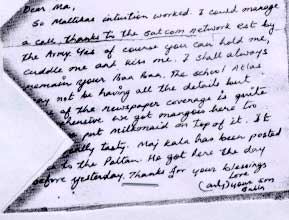 Dear Ma,
So Mallikas intuition worked. I could manage
a call, thanks to the Satcom network est by
the Army. Yes of course you can hold me,
cuddle me and kiss me. I shall always
remain your Baa baa. The school Atlas
may not be having all the details but
of the newspaper coverage is quite
we got mangoes here too
put milkmaid on top of it. It
really tasty. Maj Kala has been posted
to the Paltan. He got here the day
before yesterday. Thanks for your blessings
Love
(only) your son